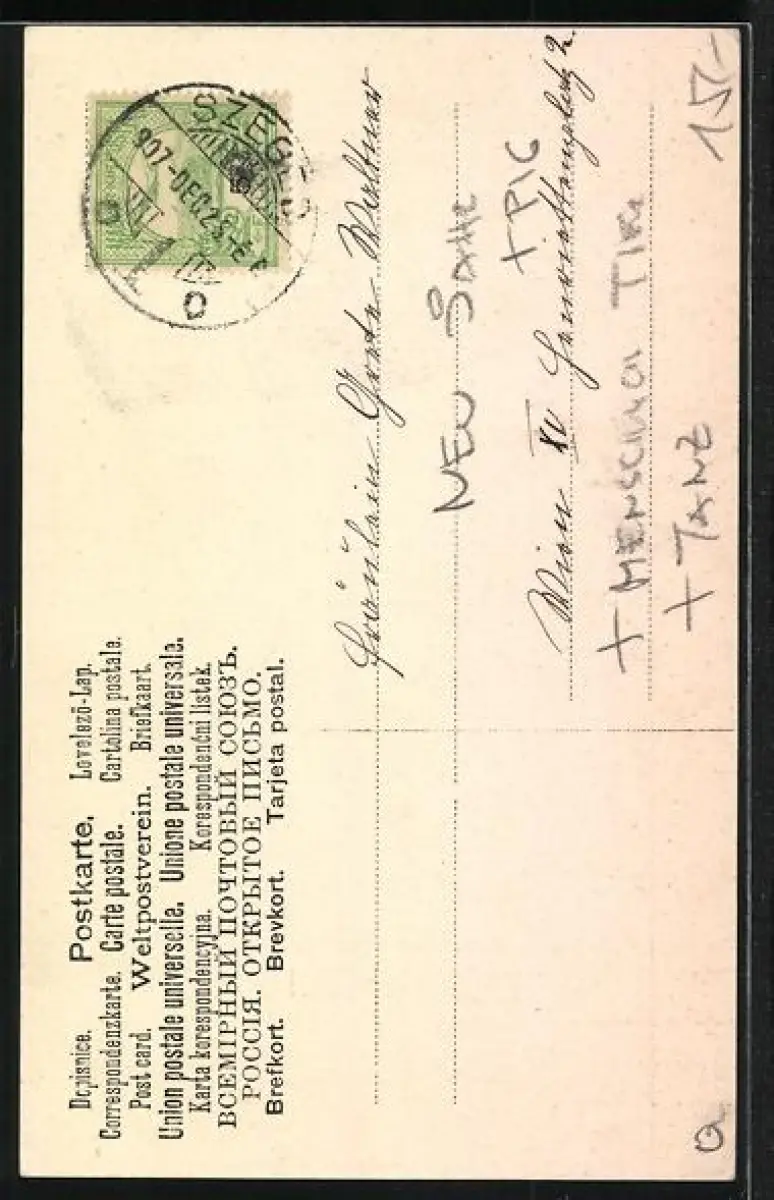 Dopisnice. Postkarte. Levelező-Lap.
Correspondenzkarte. Carte postale. Cartolina postale.
Post card. Weltpostverein. Briefkaart.
Union postale universelle. Unione postale universale.
Karta korespondencyjna. Korespondenční listek.
ВСЕМІРНЫЙ ПОЧТОВЫЙ СОЮЗЪ.
РОССІЯ. ОТКРЫТОЕ ПИСЬМО.
Brefkort. Brevkort. Tarjeta postal.
SZEGE
907-DEC 2
Fräulein Greta
NEW
+ PIG
Wien XV 2.
+ MENSCHEN TIER
+ TANZ
15,-